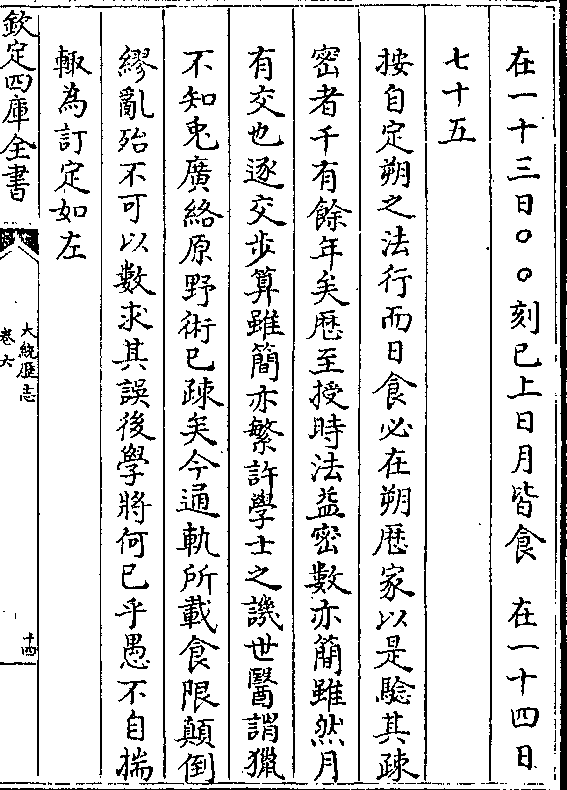 在一十三日〇〇刻已上日月皆食　在一十四日
七十五
按自定朔之法行而日食必在朔厯家以是驗其疎
密者千有餘年矣厯至授時法益密數亦簡雖然月
有交也逐交步算雖簡亦繁許學士之譏世醫謂獵
不知兎廣絡原野術已疎矣今通軌所載食限顛倒
繆亂殆不可以數求其誤後學將何已乎愚不自揣
輙為訂定如左
欽定四庫全書
大統厯志
卷六
十四